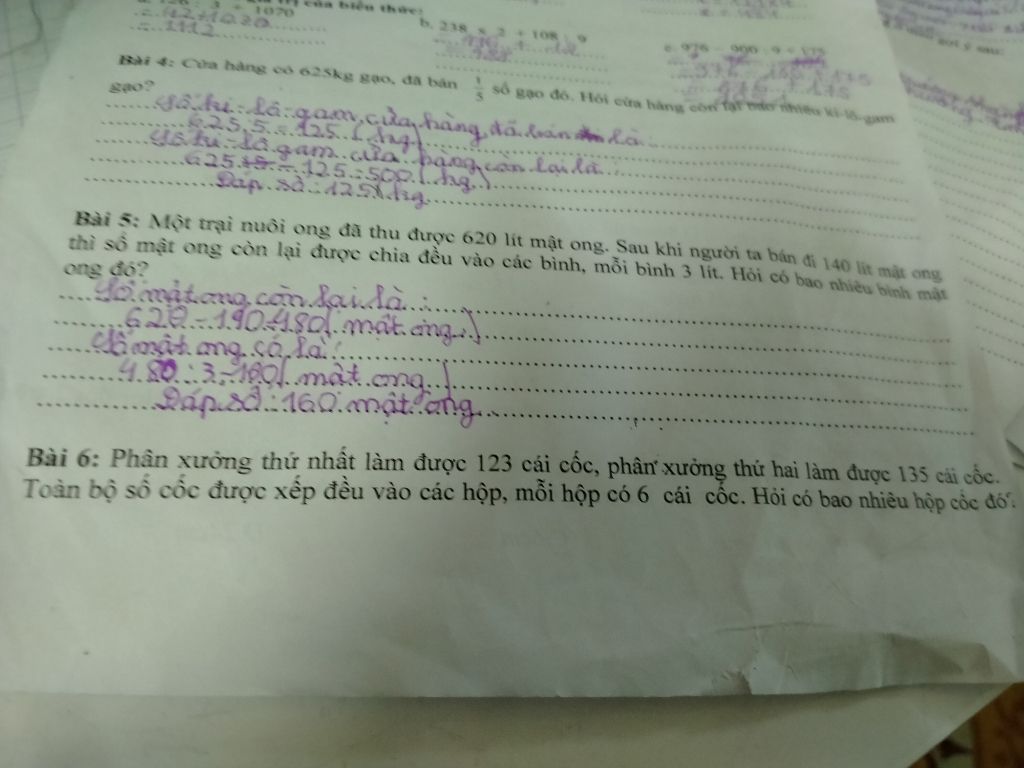 trị của biểu thức:
1070
= 42 + 1070
= 1112
b. 238 × 2 + 108 : 9
Bài 4: Cửa hàng có 625kg gạo, đã bán 1/5 số gạo đó. Hỏi cửa hàng còn lại bao nhiêu ki-lô-gam
gạo?
Số ki-lô-gam cửa hàng đã bán là
625 : 5 = 125 (kg)
Số ki-lô gam cửa hàng còn lại là :
625 - 125 = 500 (kg)
Đáp số : 125 kg
Bài 5: Một trại nuôi ong đã thu được 620 lít mật ong. Sau khi người ta bán đi 140 lít mật ong
thì số mật ong còn lại được chia đều vào các bình, mỗi bình 3 lít. Hỏi có bao nhiêu bình mật
ong đó?
Số mật ong còn lại là :
620 - 140 = 480 ( mật ong )
Số mật ong có là :
480 : 3 = 160 ( mật ong )
Đáp số : 160 mật ong
Bài 6: Phân xưởng thứ nhất làm được 123 cái cốc, phân xưởng thứ hai làm được 135 cái cốc.
Toàn bộ số cốc được xếp đều vào các hộp, mỗi hộp có 6 cái cốc. Hỏi có bao nhiêu hộp cốc đó?